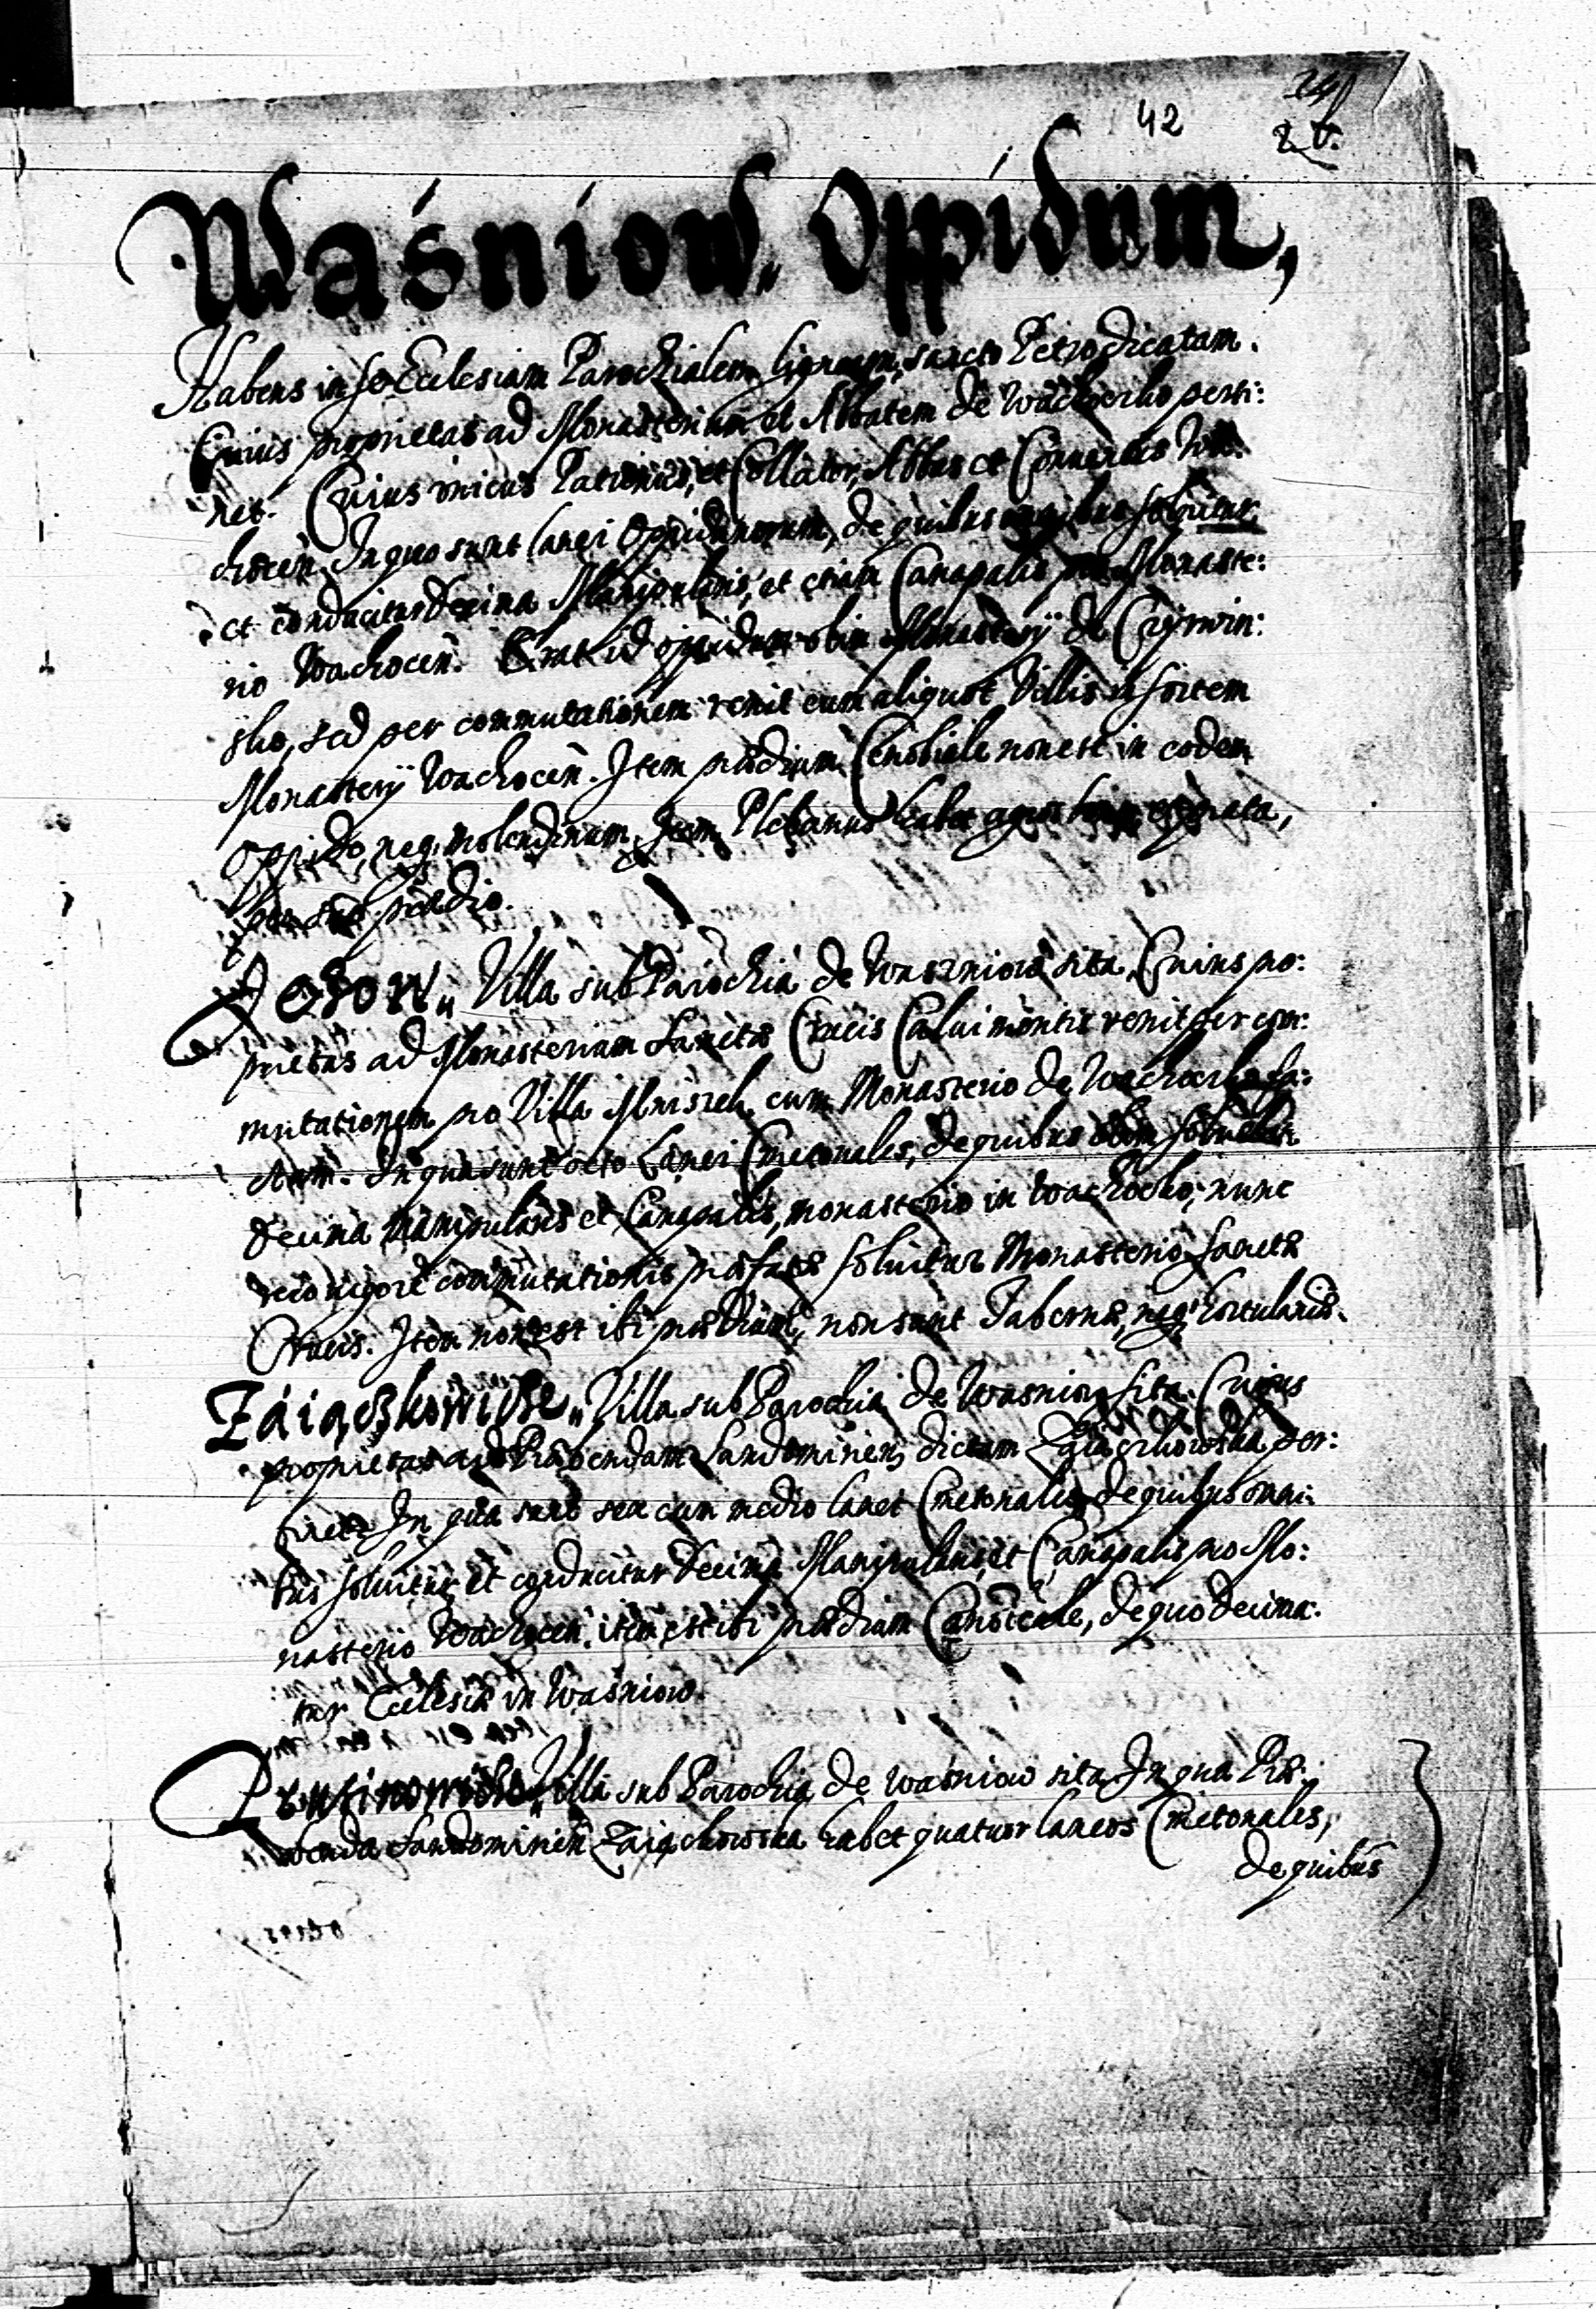 42
Waśniow„ Oppidum,
Habens in se Ecclesiam Parochialem ligneam, sancto Petro dicatam.
Cuius proprietas ad Monasterium et Abbatem de Wachocko perti:
net. Cuius vnicus Patronus, et Collator, Abbas et Conuentus Wa:
chocen̄. In quo sunt lanei Oppidanorum, de quibus soluitur,
et conducitur Decima Manipularis, et etiam Canapalis pro Monaste:
rio Wachocen̄. Erat id oppidum olim Monasterij de Czyrwin:
sko, sed per commutationem venit cum aliquot Villis in sortem
Monasterij Wachocen̄. Item prædium Cenobiale non est in eodem
Oppido, neq, molendinum. Item Plebanus habet agros et prata,
pro suo prædio.
Jeżow„ Villa sub Parochia de Waszniow sita, Cuius pro:
prietas ad Monasterium Sanctæ Crucis Calui montis venit per com:
mutationem pro Villa Mniszek cum Monasterio de Wachocko fa:
ctam. In qua sunt octo Lanei Cmetonales, de quibus olim soluebatur
Decima Manipularis et Canapalis, monasterio in Wachocko, nunc
vero vigore commutationis præfatæ soluitur Monasterio Sanctæ
Crucis. Item non est ibi prædium, non sunt Tabernæ, neq, hortulaniæ.
Záiączkowice„ Villa sub Parochia de Wasniow sita. Cuius
proprietas ad Præbendam Sandomirien̄ dictam Zaiączkowska per:
tinet. In qua sunt sex cum medio lanei Cmetonales, de quibus omni:
bus soluitur, et conducitur Decima Manipularis, et Canapalis pro Mo:
nasterio Wachocen̄. item est ibi prædium Canonicale, de quo decima:
tur Ecclesiæ in Waśniow.
Prusinowice„ Villa sub Parochia de Waśniow sita, In qua Præ:
benda Sandomirien̄ Zaiączkowska habet quatuor laneos Cmetonales,
de quibus